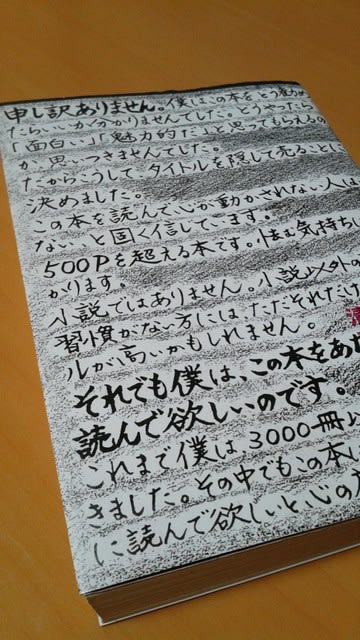 申し訳ありません。僕はこの本をどう勧め
たらいいか分かりませんでした。どうやったら
「面白い」「魅力的だ」と思ってもらえるの
か、思いつきませんでした。
だからこうして、タイトルを隠して売ることに
決めました。
この本を読んで心が動かされない人は
ない、と固く信じています。
500Pを超える本です。怯む気持ち
かります。
小説ではありません。小説以外の
習慣がない方には、ただそれだけ
ルが高いかもしれません。
それでも僕は、この本をあな
読んで欲しいのです。
これまで僕は、3000冊以
きました。その中でもこの本は
に読んで欲しいと心の